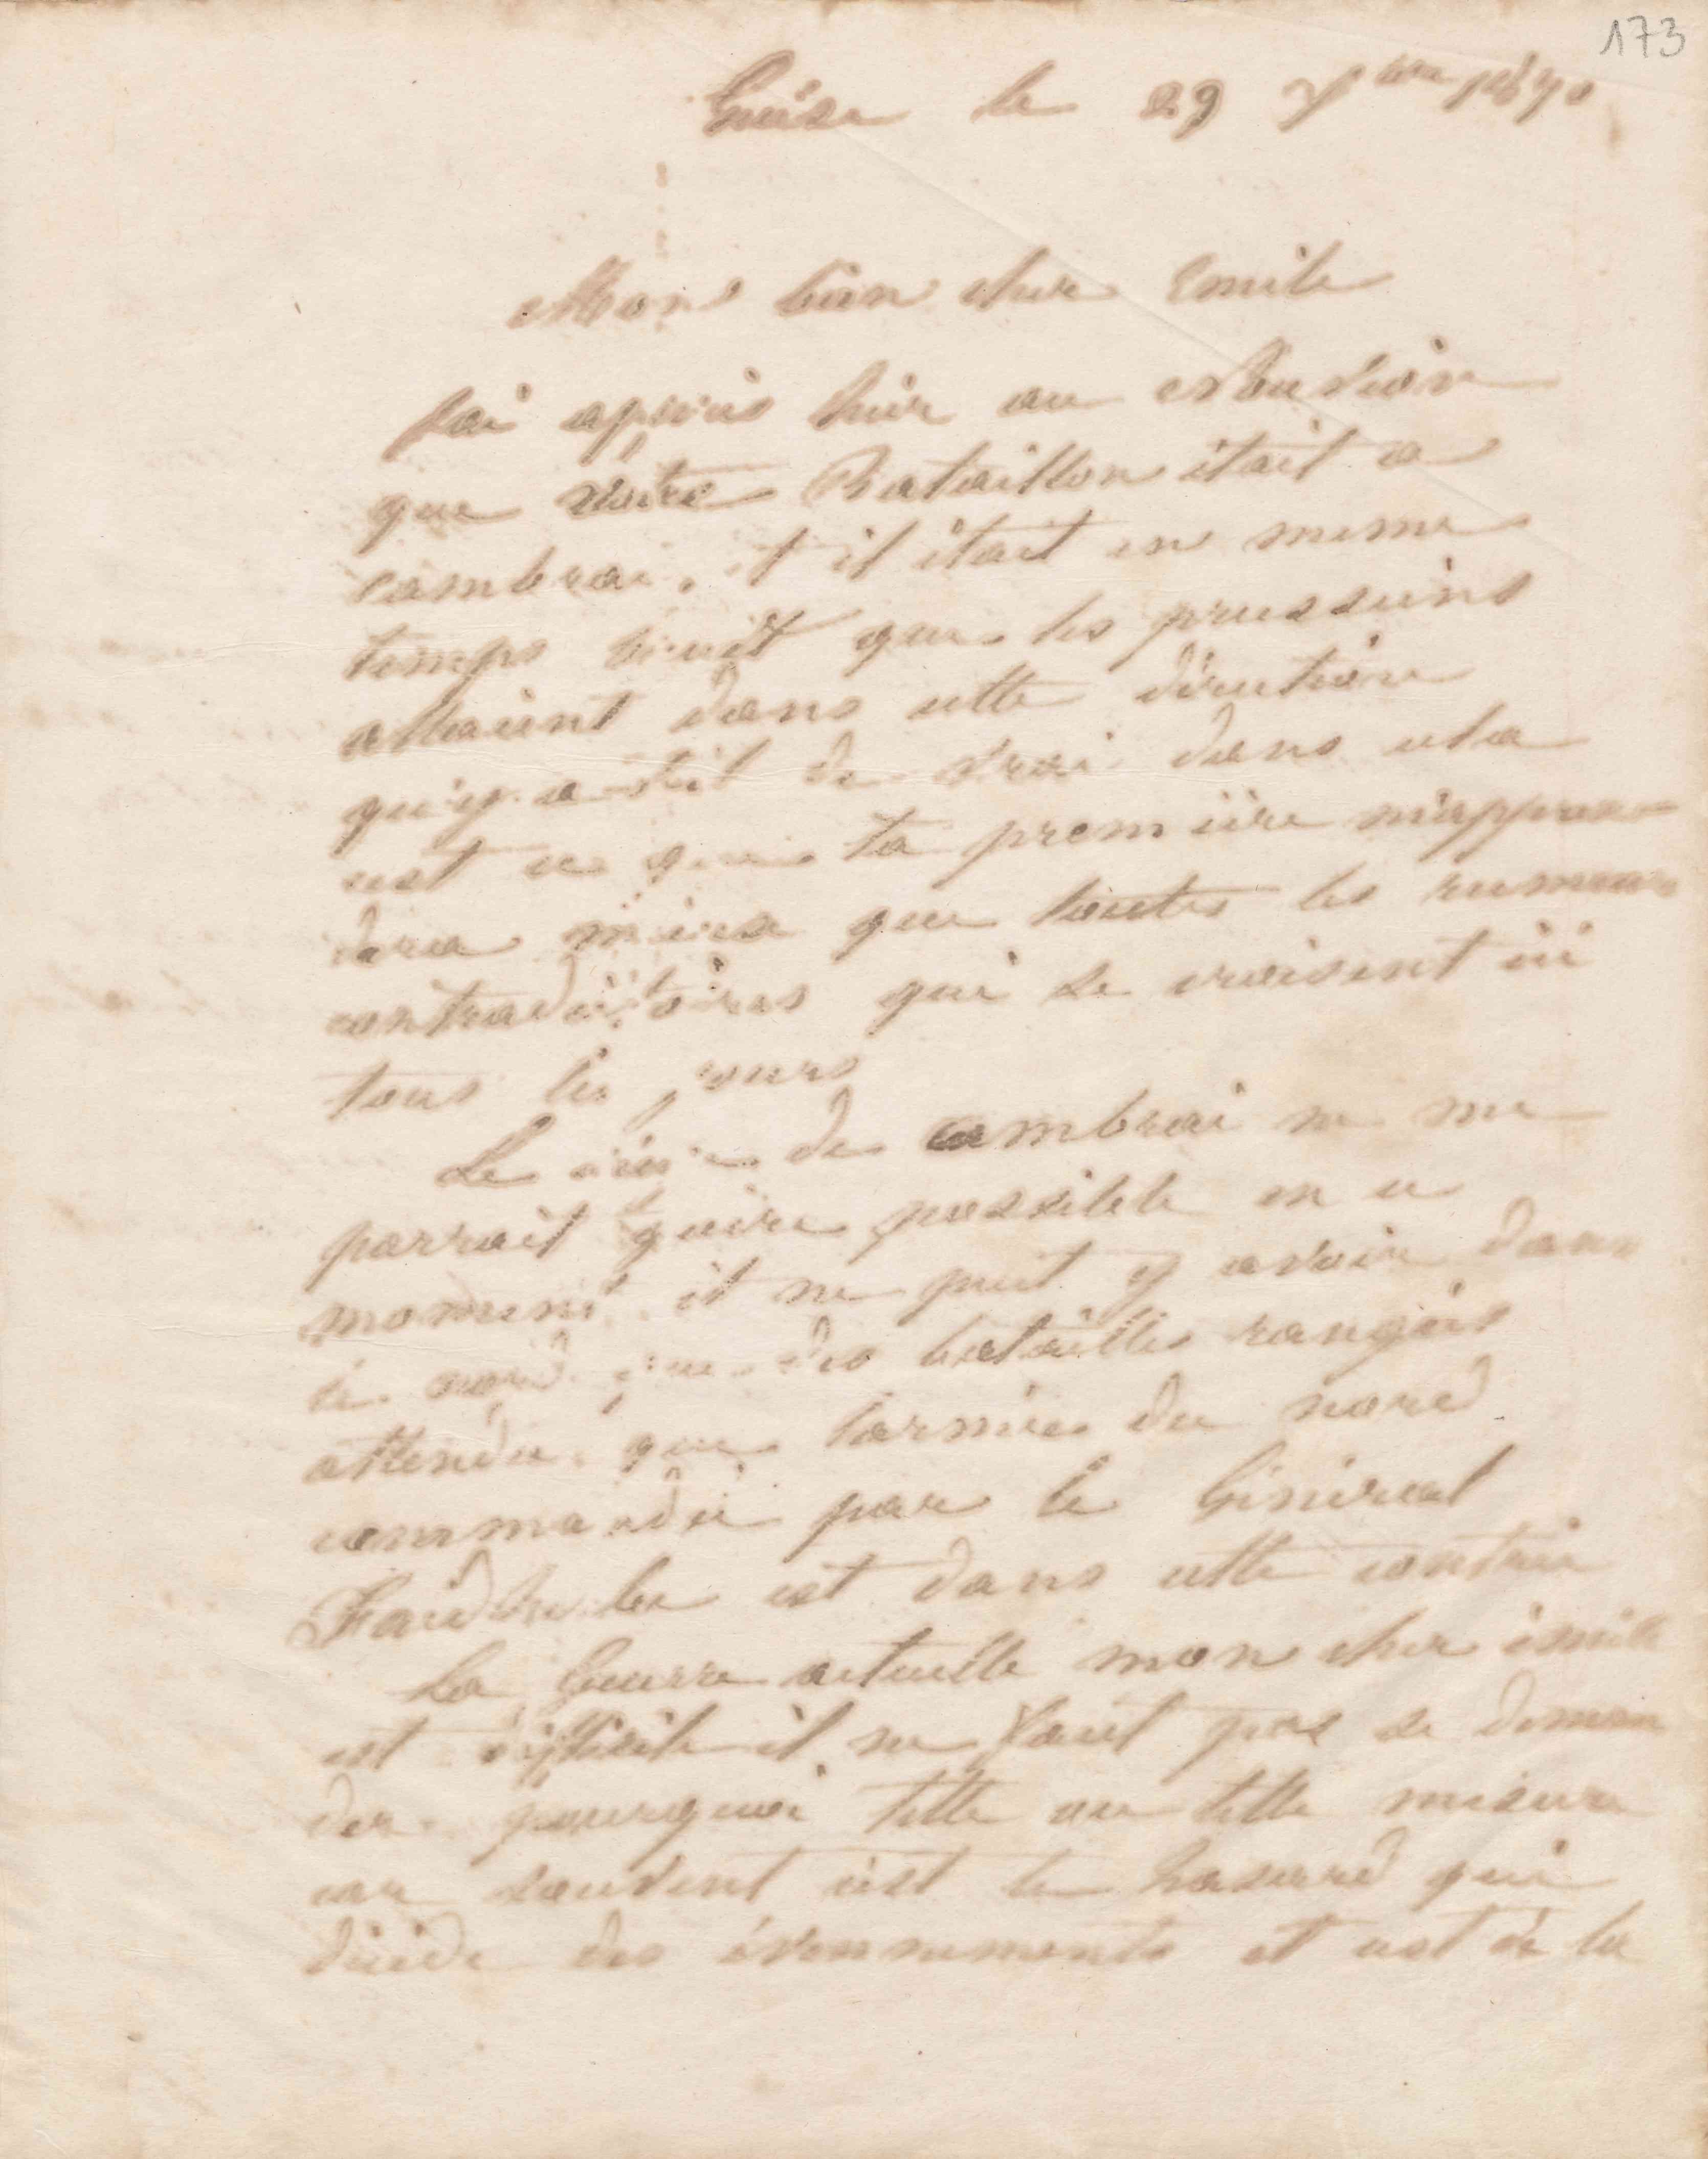 173
Guise le 29 Xbre 1870
Mon bien cher Emile
J'ai appris hier au Nouvion
que votre Bataillon était a
Cambrai, et il était en meme
temps bruit que les prussiens
allaient dans cette direction
qu'y a-t-il de vrai dans cela
c'est ce que ta première m'appren-
dra mieux que toutes les rumeurs
contradictoires qui se croisent ici
tous les jours
Le siège de Cambrai ne me
parrait guère possible en ce
moment, il ne peut y avoir dans
le nord que des batailles rangées
attendu que l'armée du nord
commandée par le Général
Faidherbe est dans cette contrée
La Guerre actuelle mon cher émile
est difficile il ne faut pas se deman
der pourquoi telle ou telle mesure
car souvent c'est le hasard qui
décide des évennements et c'est à la